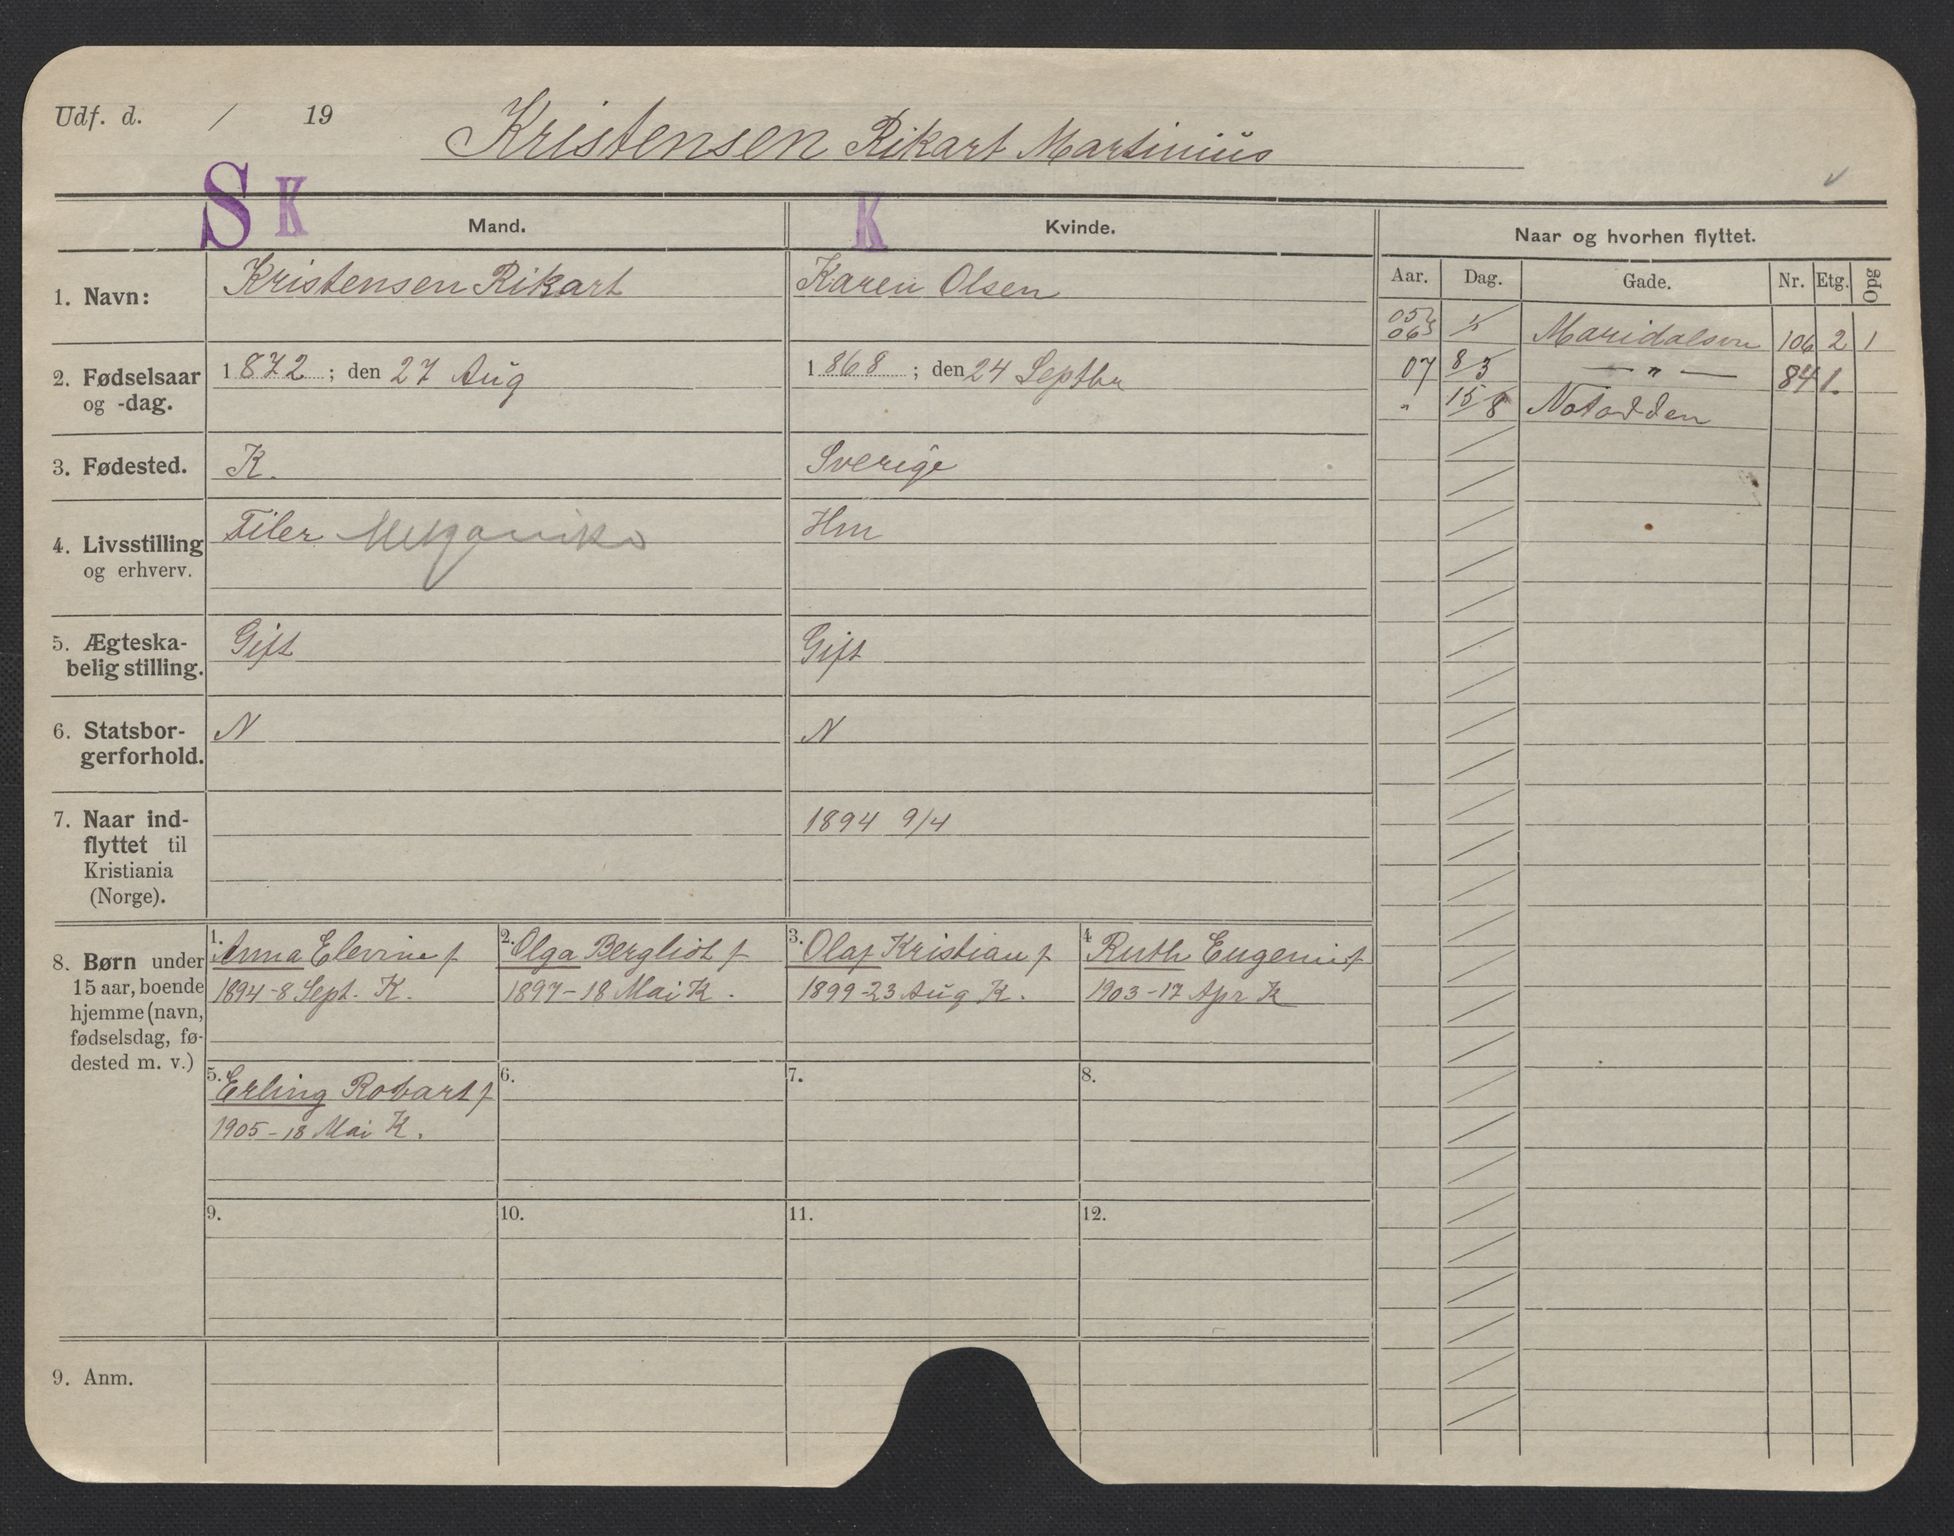 Udf. d. / 19 Kristensen Rikart Martinius
S K K
Mand. Kvinde. Naar og hvorhen flyttet.
Aar. Dag. Gade. Nr. Etg. Opg
1. Navn: Kristensen Rikart Karen Olsen
05 06 Maridalsvn 106 2 1
07 8/3 — " — 84 1.
" 15/8 Notodden
2. Fødselsaar og -dag. 1872; den 27 Aug 1868; den 24 Septbr
3. Fødested. K. Sverige
4. Livsstilling og erhverv. Filer Hm
5. Ægteska-
belig stilling. Gift Gift
6. Statsbor-
gerforhold. N N
7. Naar ind-
flyttet til
Kristiania
(Norge).
1894 9/4
8. Børn under
15 aar, boende
hjemme (navn,
fødselsdag, fø-
dested m. v.)
1. Anna Elevine f
1894-8 Sept. K.
2. Olga Bergliot f
1897-18 Mai K.
3. Olaf Kristian f
1899-23 Aug K.
4 Ruth Eugenie f
1903-17 Apr K
5. Erling Robart f
1905-18 Mai K.
6.
7.
8.
9.
10.
11.
12.
9. Anm.